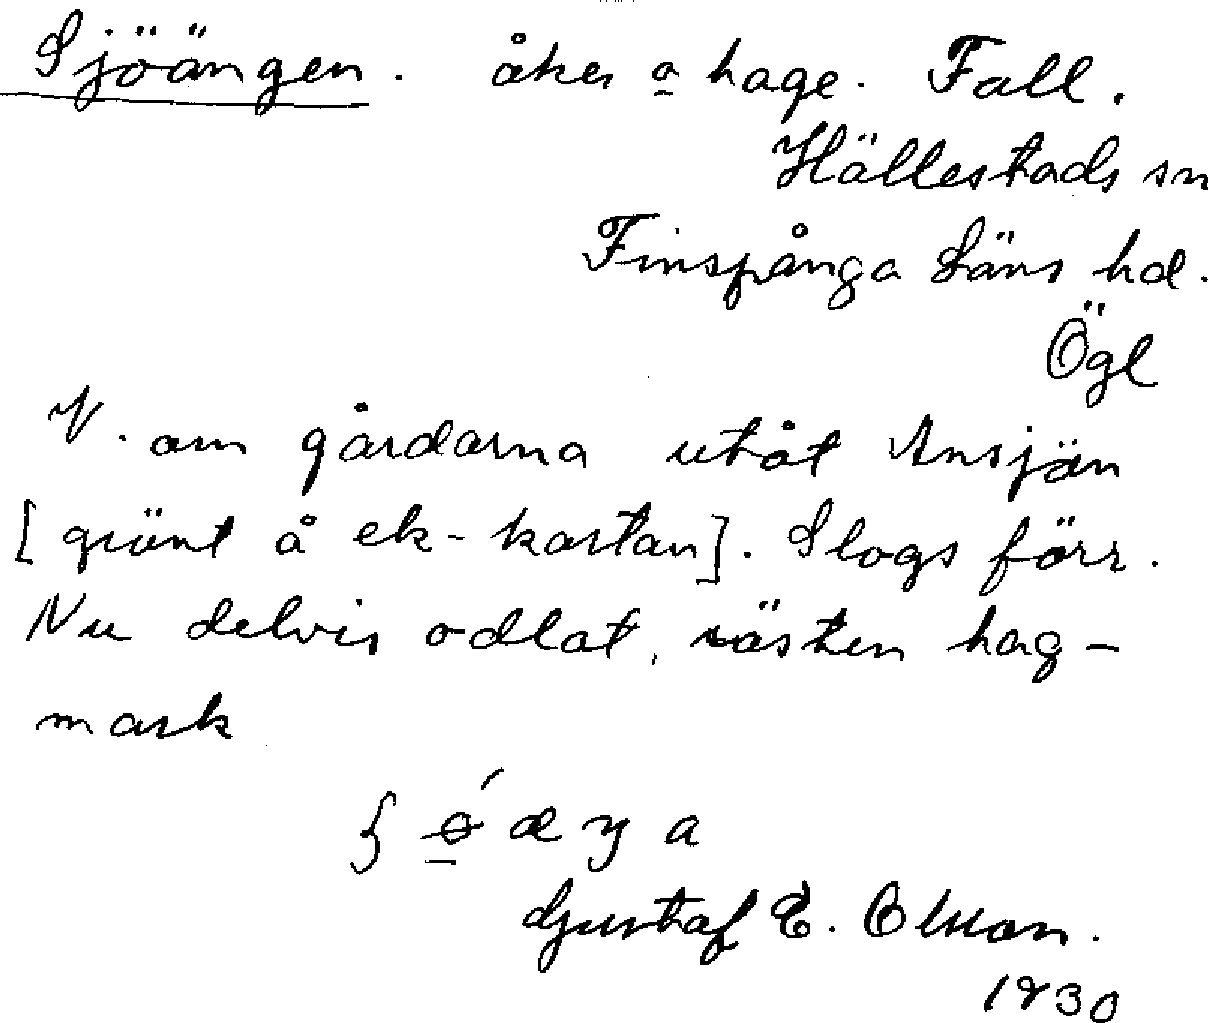 Sjöängen. åker o hage. Fall.
Hällestads sn
Finspånga Läns hd.
Ögl
V. om gårdarna utåt Ansjön
[grönt å ek-kartan]. Slogs förr.
Nu delvis odlat, nästen hag-
mark
Gustaf E. Olsson.
1930